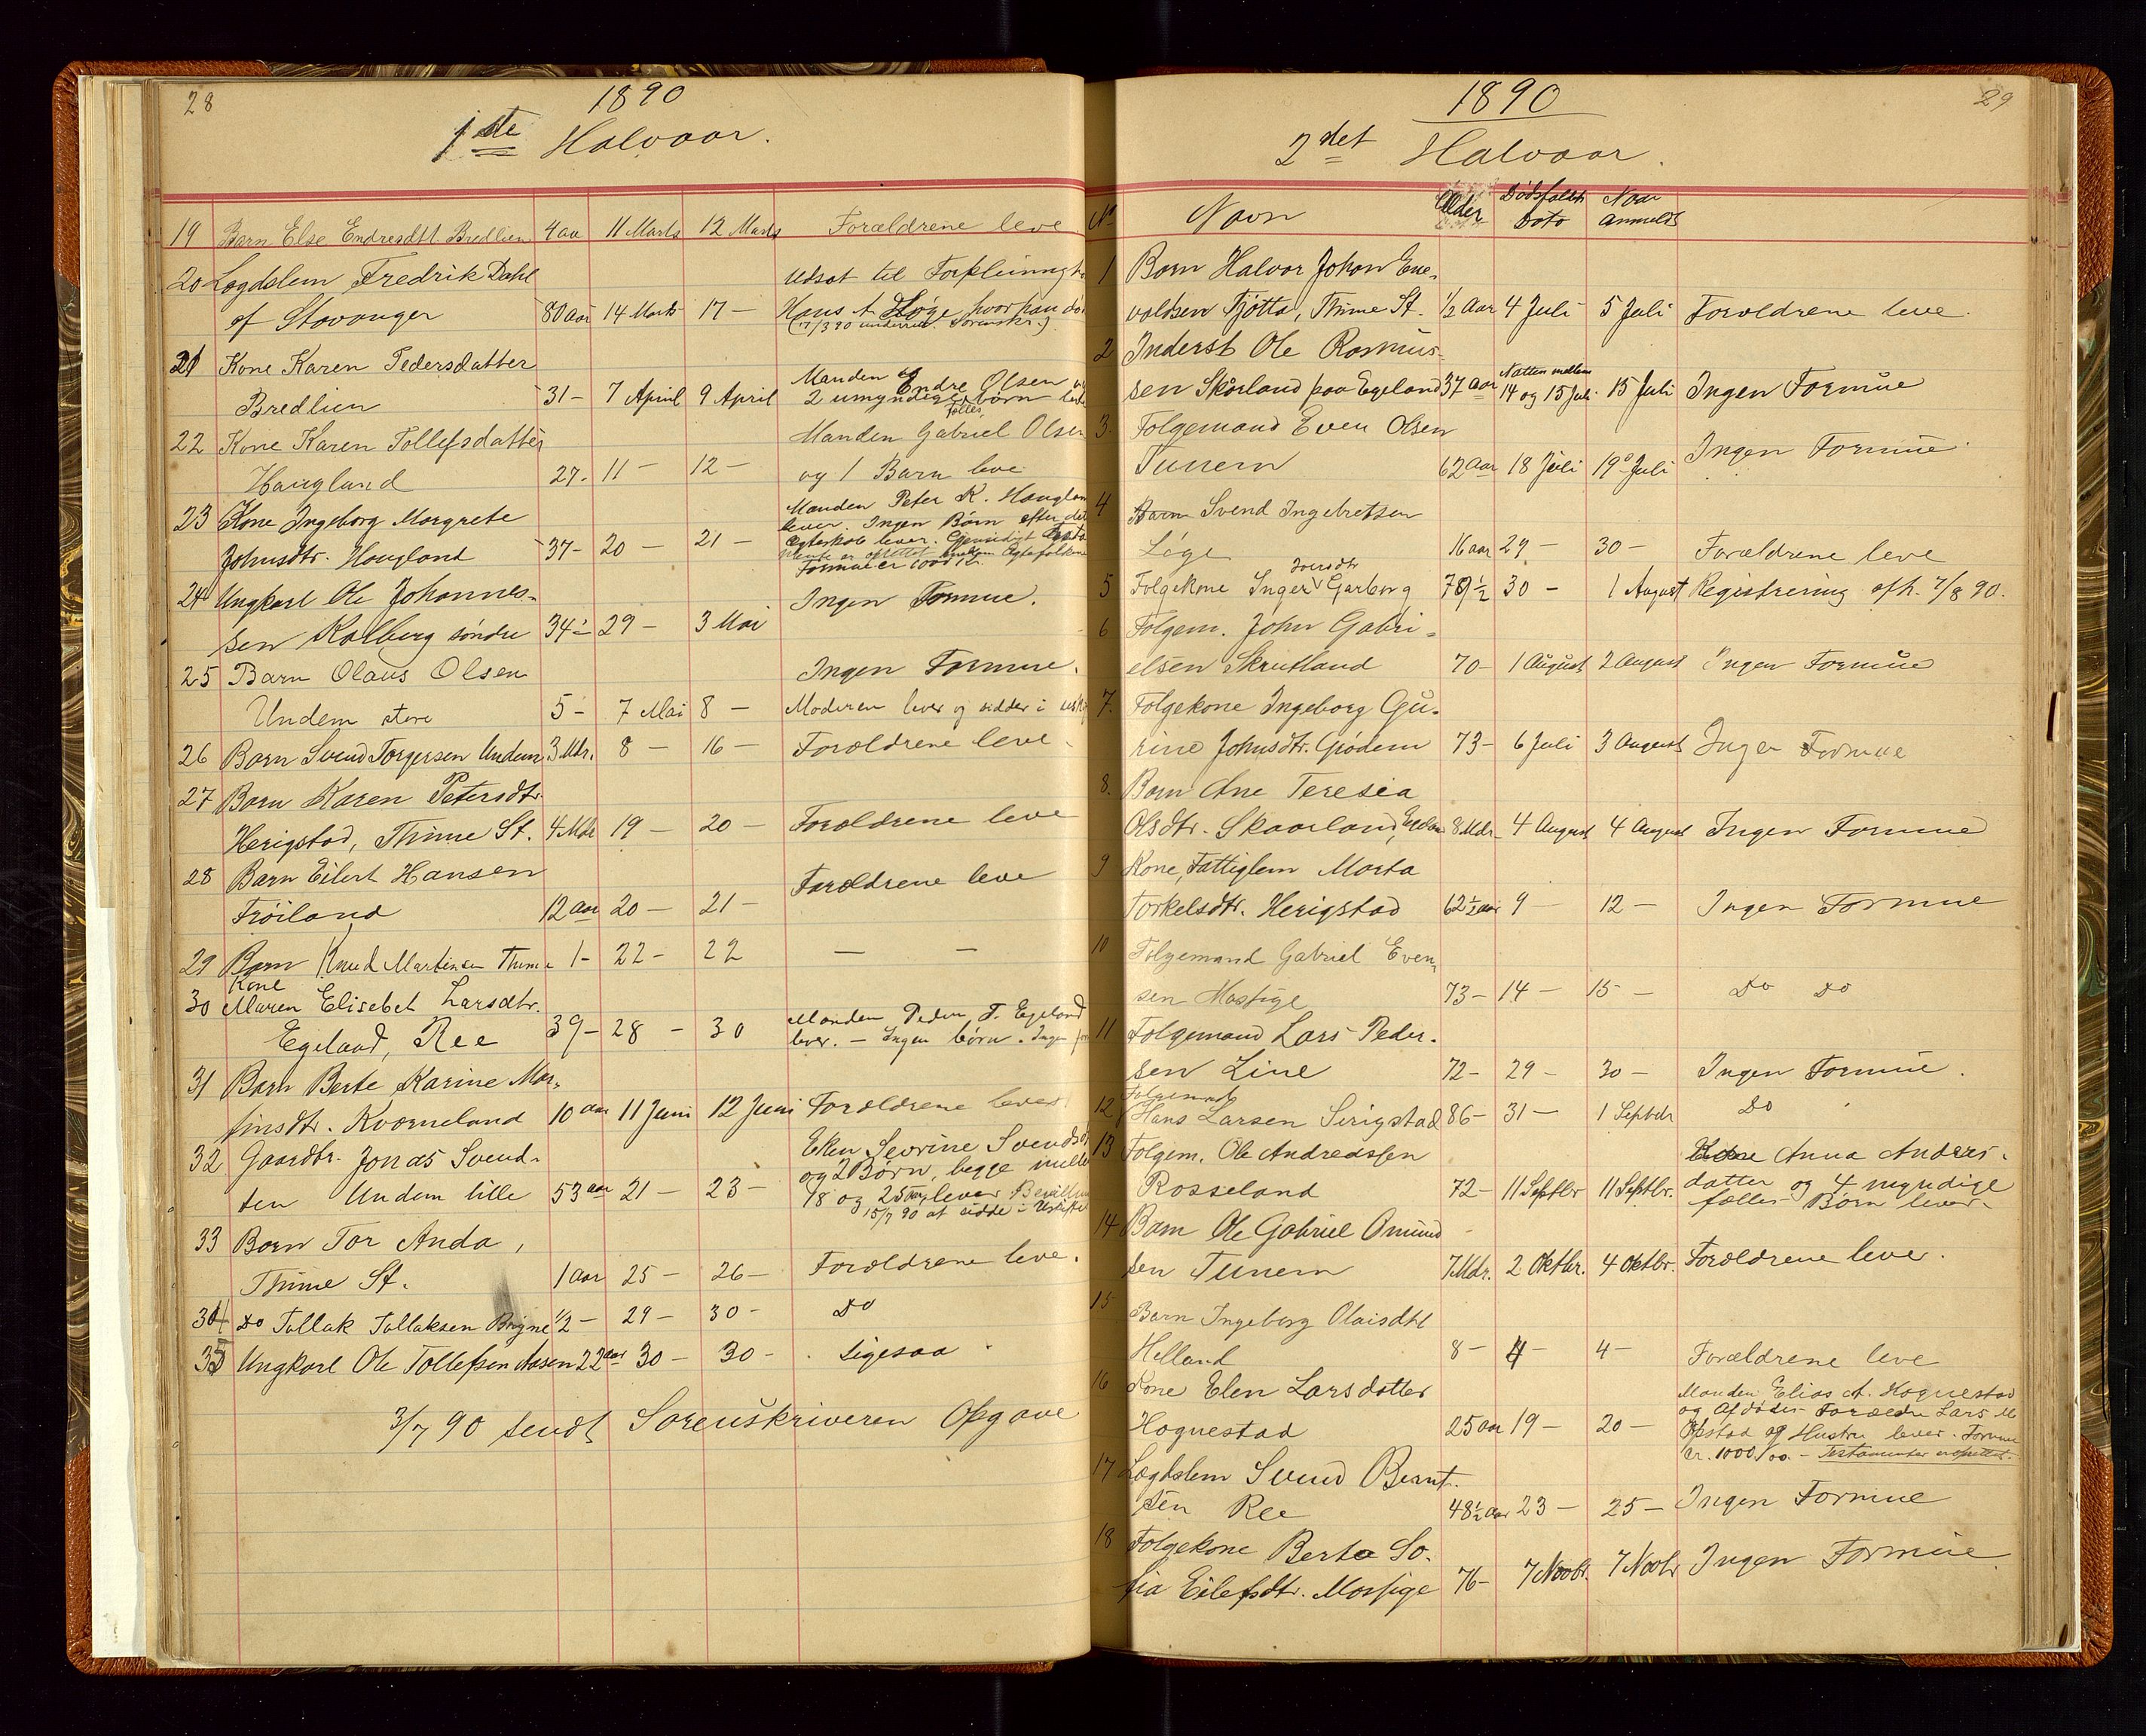 28
1890
1ste Halvaar.
19 Barn Else Endresdtr. Bredlien 4 aa 11 Marts 12 Marts Forældrene leve
20 Lægdslem Fredrik Dahl
af Stavanger 80 Aar 14 Marts 17 —
Udsat til Forpleining
Hans A Høge, hvor han dø
(17/3 90 underret. Sorenskr.)
21 Kone Karen Pedersdatter
Bredlien 31 - 7 April 9 April
Manden Endre Olsen
2 umyndige fælles børn
22 Kone Karen Tollefsdatter
Haugland 27 - 11 - 12 -
Manden Gabriel Olsen
og 1 Barn leve
23 Kone Ingeborg Margrete
Johnsdtr. Haugland 37 - 20 - 21 -
Manden Peter K. Hauglan
lever. Ingen Børn efter det
Ægteskab lever. Gjensidigt
Formue er 1000 Kr.
24 Ungkarl Ole Johannes-
sen Kalberg søndre 34 - 29 - 3 Mai
Ingen Formue.
25 Barn Olaus Olsen
Undem store 5 - 7 Mai 8 -
Ingen Formue.
Moderen lever og sidder i
26 Barn Svend Torgersen Undem 3 Mdr. 8 - 16 - Forældrene leve
27 Barn Karen Petersdtr.
Herigstad, Thime St. 4 Mdr 19 - 20 - Forældrene leve
28 Barn Eilert Hansen
Frøiland 12 aar 20 - 21 - Forældrene leve
29 Barn Knud Martinsen Thime 1 - 22 - 22 — —
Kone
30 Maren Elisebet Larsdtr.
Egeland, Ree 39 - 28 - 30
Manden Peder T. Egeland
lever. - Ingen børn. Ingen
31 Barn Berte Karine Mar-
tinsdtr. Kværneland 10 aar 11 Juni 12 Juni Forældrene lever
32 Gaardbr. Jonas Svend-
sen Undem lille 53 aar 21 - 23 -
Eken Sevrine Svendsd
og 2 Børn, begge
18 og 25 lever
15/7 90 at sidde i Uskifte
33 Barn Tor Anda,
Thime St. 1 Aar 25 - 26 - Forældrene leve.
34 Do Tollak Tollaksen Bryne 1/2 - 29 - 30 - Do
35 Ungkarl Ole Tollefsen Aasen 22 aar 30 - 30 - Ligesaa
3/7 90 sendt Sorenskriveren Opgave
29
1890
2det Halvaar.
No Navn Alder Dødsfaldets Dato Naar anmeldt
1 Barn Halvor Johan Ene-
voldsen Tjøtta, Thime St. 1/2 Aar 4 Juli 5 Juli Forældrene leve.
2 Inderst Ole Rasmus-
sen Skårland paa Egeland 37 aar Natten mellem 14 og 15 Juli 15 Juli Ingen Formue
3. Folgemand Even Olsen
Tunem 62 aar 18 Juli 19 Juli Ingen Formue
4 Barn Svend Ingebretsen
Løge 16 aar 29 - 30 - Forældrene leve
5 Folgekone Inger Iversdtr Garborg 79 1/2 30 - 1 August Registrering afh. 7/8 90.
6 Folgem. John Gabri-
elsen Skrutland 70 - 1 August 2 August Ingen Formue
7. Folgekone Ingeborg Gu-
rine Johnsdtr. Grødem 73 - 6 Juli 3 August Ingen Formue
8. Barn Ane Teresia
Olsdtr. Skaarland, Egeland 8 Mdr 4 August 4 August Ingen Formue
9 Kone, Fattiglem Marta
Torkelsdtr. Herigstad 62 1/2 aar 9 - 12 - Ingen Formue
10 Folgemand Gabriel Even-
sen Mossige 73 - 14 - 15 - Do Do
11 Folgemand Lars Peder-
sen Line 72 - 29 - 30 - Ingen Formue.
Folgemand
12 Hans Larsen Serigstad 86 - 31 - 1 Septbr Do
13 Folgem. Ole Andreassen
Rosseland 72 - 11 Septbr 11 Septbr.
Kone Anna Anders-
datter og 4 myndige
fælles Børn lever.
14 Barn Ole Gabriel Omund
sen Tunem 7 Mdr. 2 Oktbr. 4 Oktbr. Forældrene lever.
15 Barn Ingeborg Olaisdtr
Helland 8 - 4 - 4 - Forældrene leve
16 Kone Elen Larsdatter
Hognestad 25 aar 19 - 20 -
Manden Elias A. Hognestad
og Afdødes Forældre Lars M
Opstad og Hustru lever. Formue
Kr. 1000.00. - Testamenter oprettet.
17 Lægdslem Svend Bernt-
sen Ree 48 1/2 aar 23 - 25 - Ingen Formue
18 Folgekone Berta So-
fia Eilefsdtr. Mossige 76 - 7 Novbr. 7 Novbr Ingen Formue